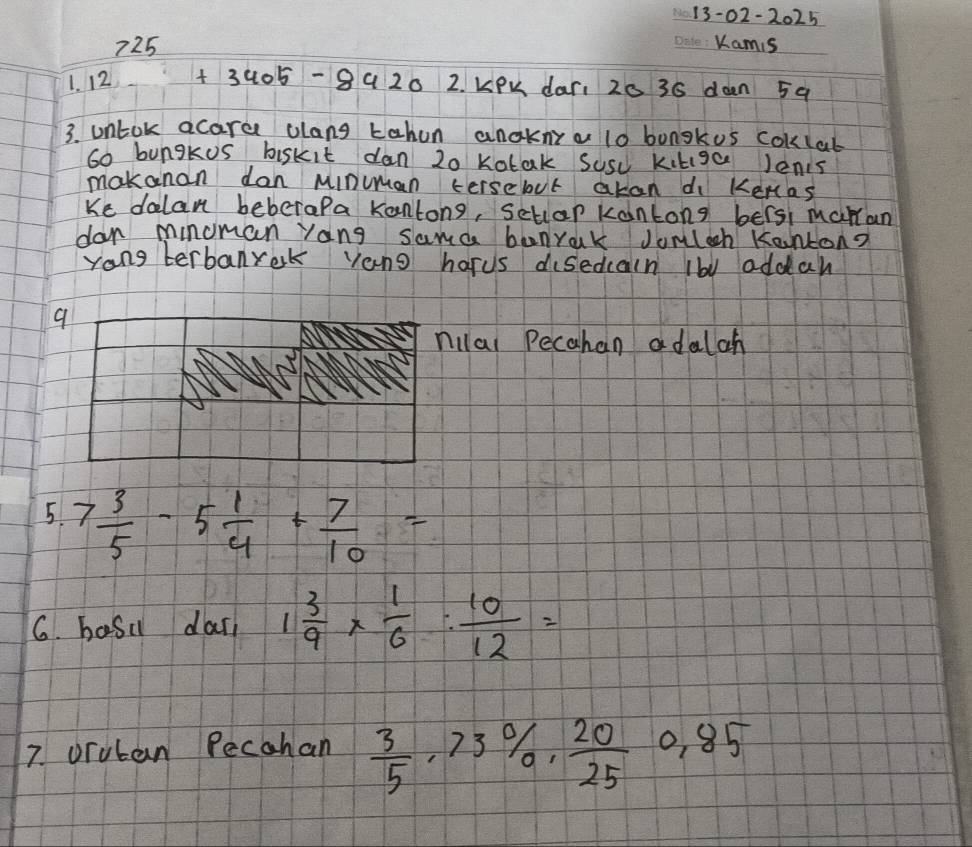 No. 13-02-2025
Date: Kamis
725
1. 12 + 3405 - 8420 2. KPK dari 20 36 dan 54
3. untuk acara ulang tahun anaknya 10 bungkus coklat
60 bungkus biskit dan 20 kotak susu kitiga Jenis
makanan dan Minuman tersebut akan di Kemas
Ke dalam beberapa kantong, setiap kantong bersi makan
dan minuman yang sama banyak Jumlah Kantong
yang terbanyak yang harus disediain ibu addah
4 nilai Pecahan adalah
5. 7 3/5 - 5 1/4 + 7/10 =
6. hasil dari 1 3/9 x 1/6 : 10/12 =
7. urutan Pecahan 3/5, 73%, 20/25 0,85